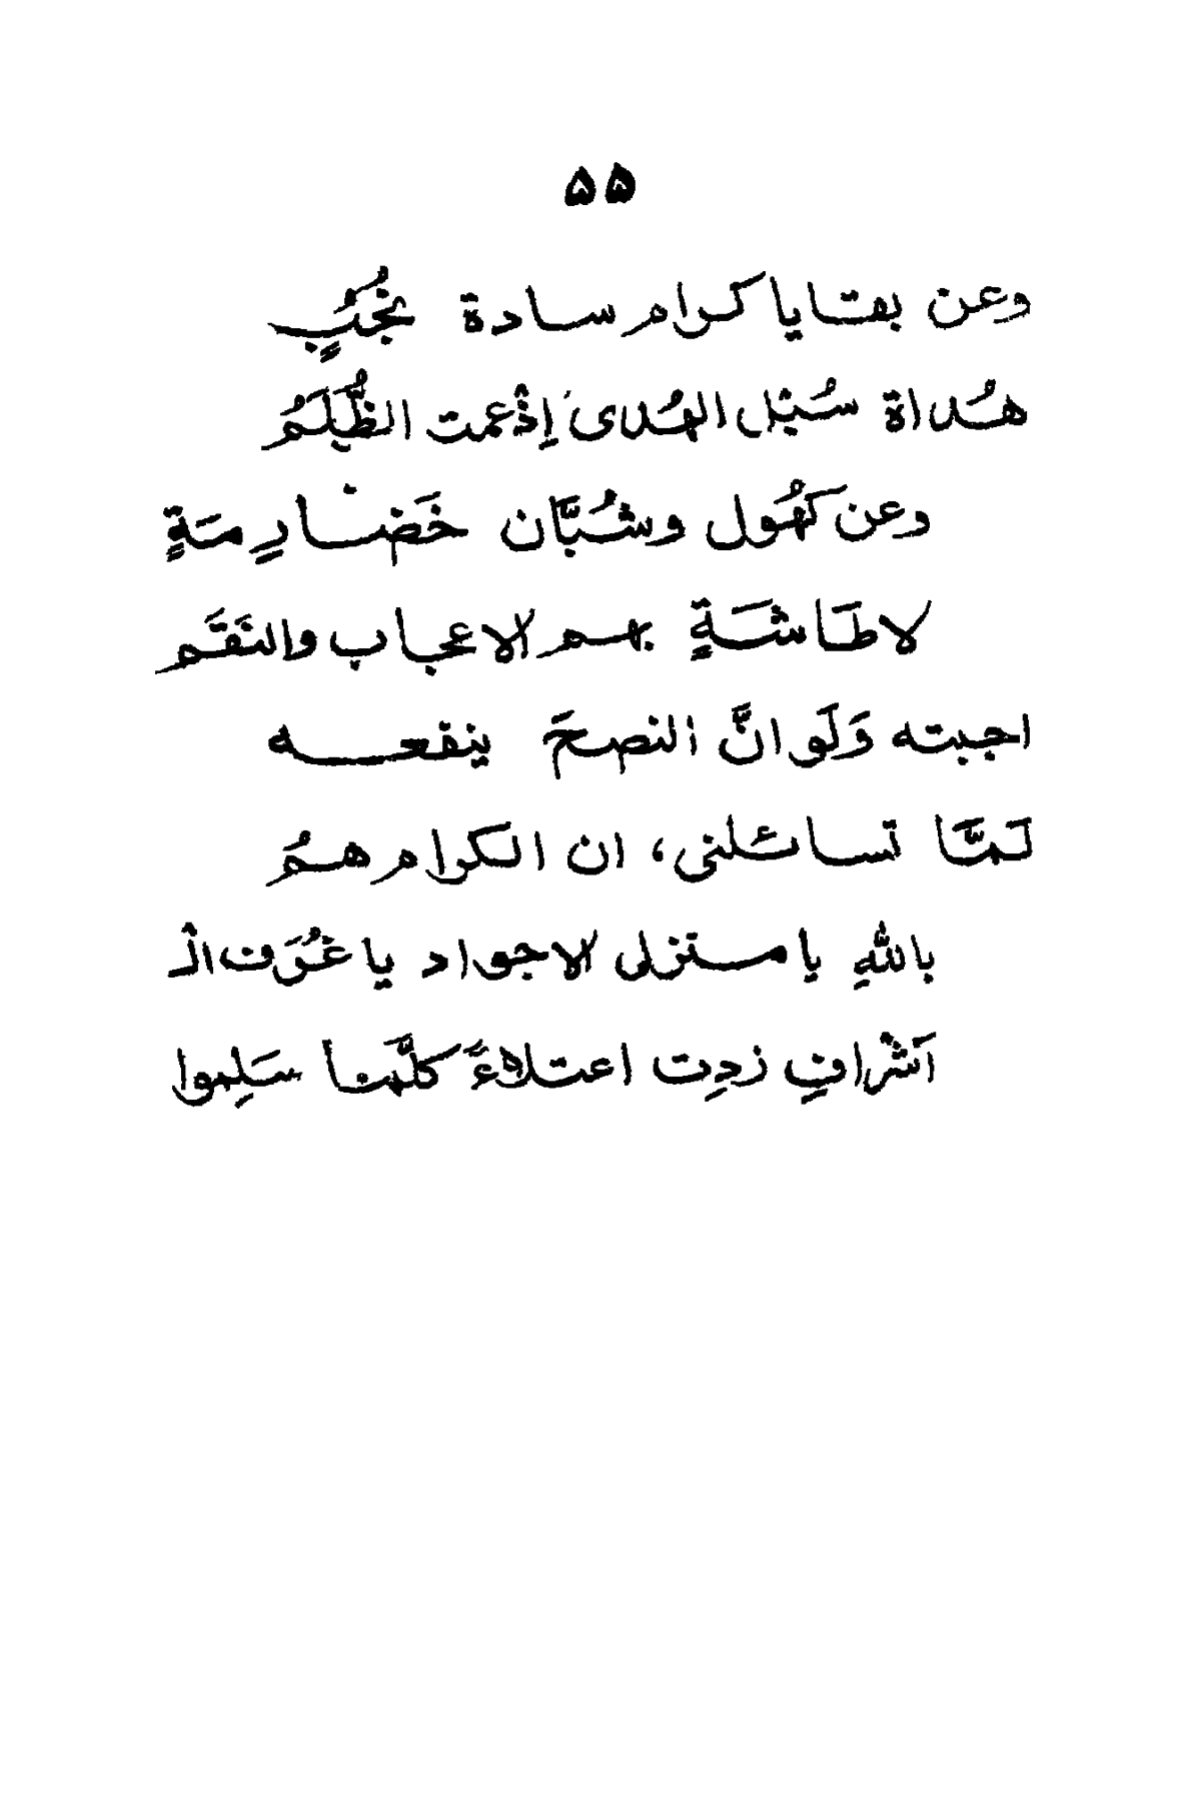 ۵۵
وعن بقايا كرام سادة نُجُبٍ
هُداة سُبْل الهُدى إذْ عمت الظُّلَمُ
وعن كهُول وشُبَّان خَضارِمَةٍ
لا طَاشَةٍ بهم الاعجاب والنَقَم
اجبته وَلَو انَّ النصحَ ينفعه
لَمَّا تسائلنى، ان الكرام همُ
باللهِ يا منزلى الاجواد يا غُرَف الْـ
أشْرافِ زدِت اعتلاءً كلَّما سَلِموا